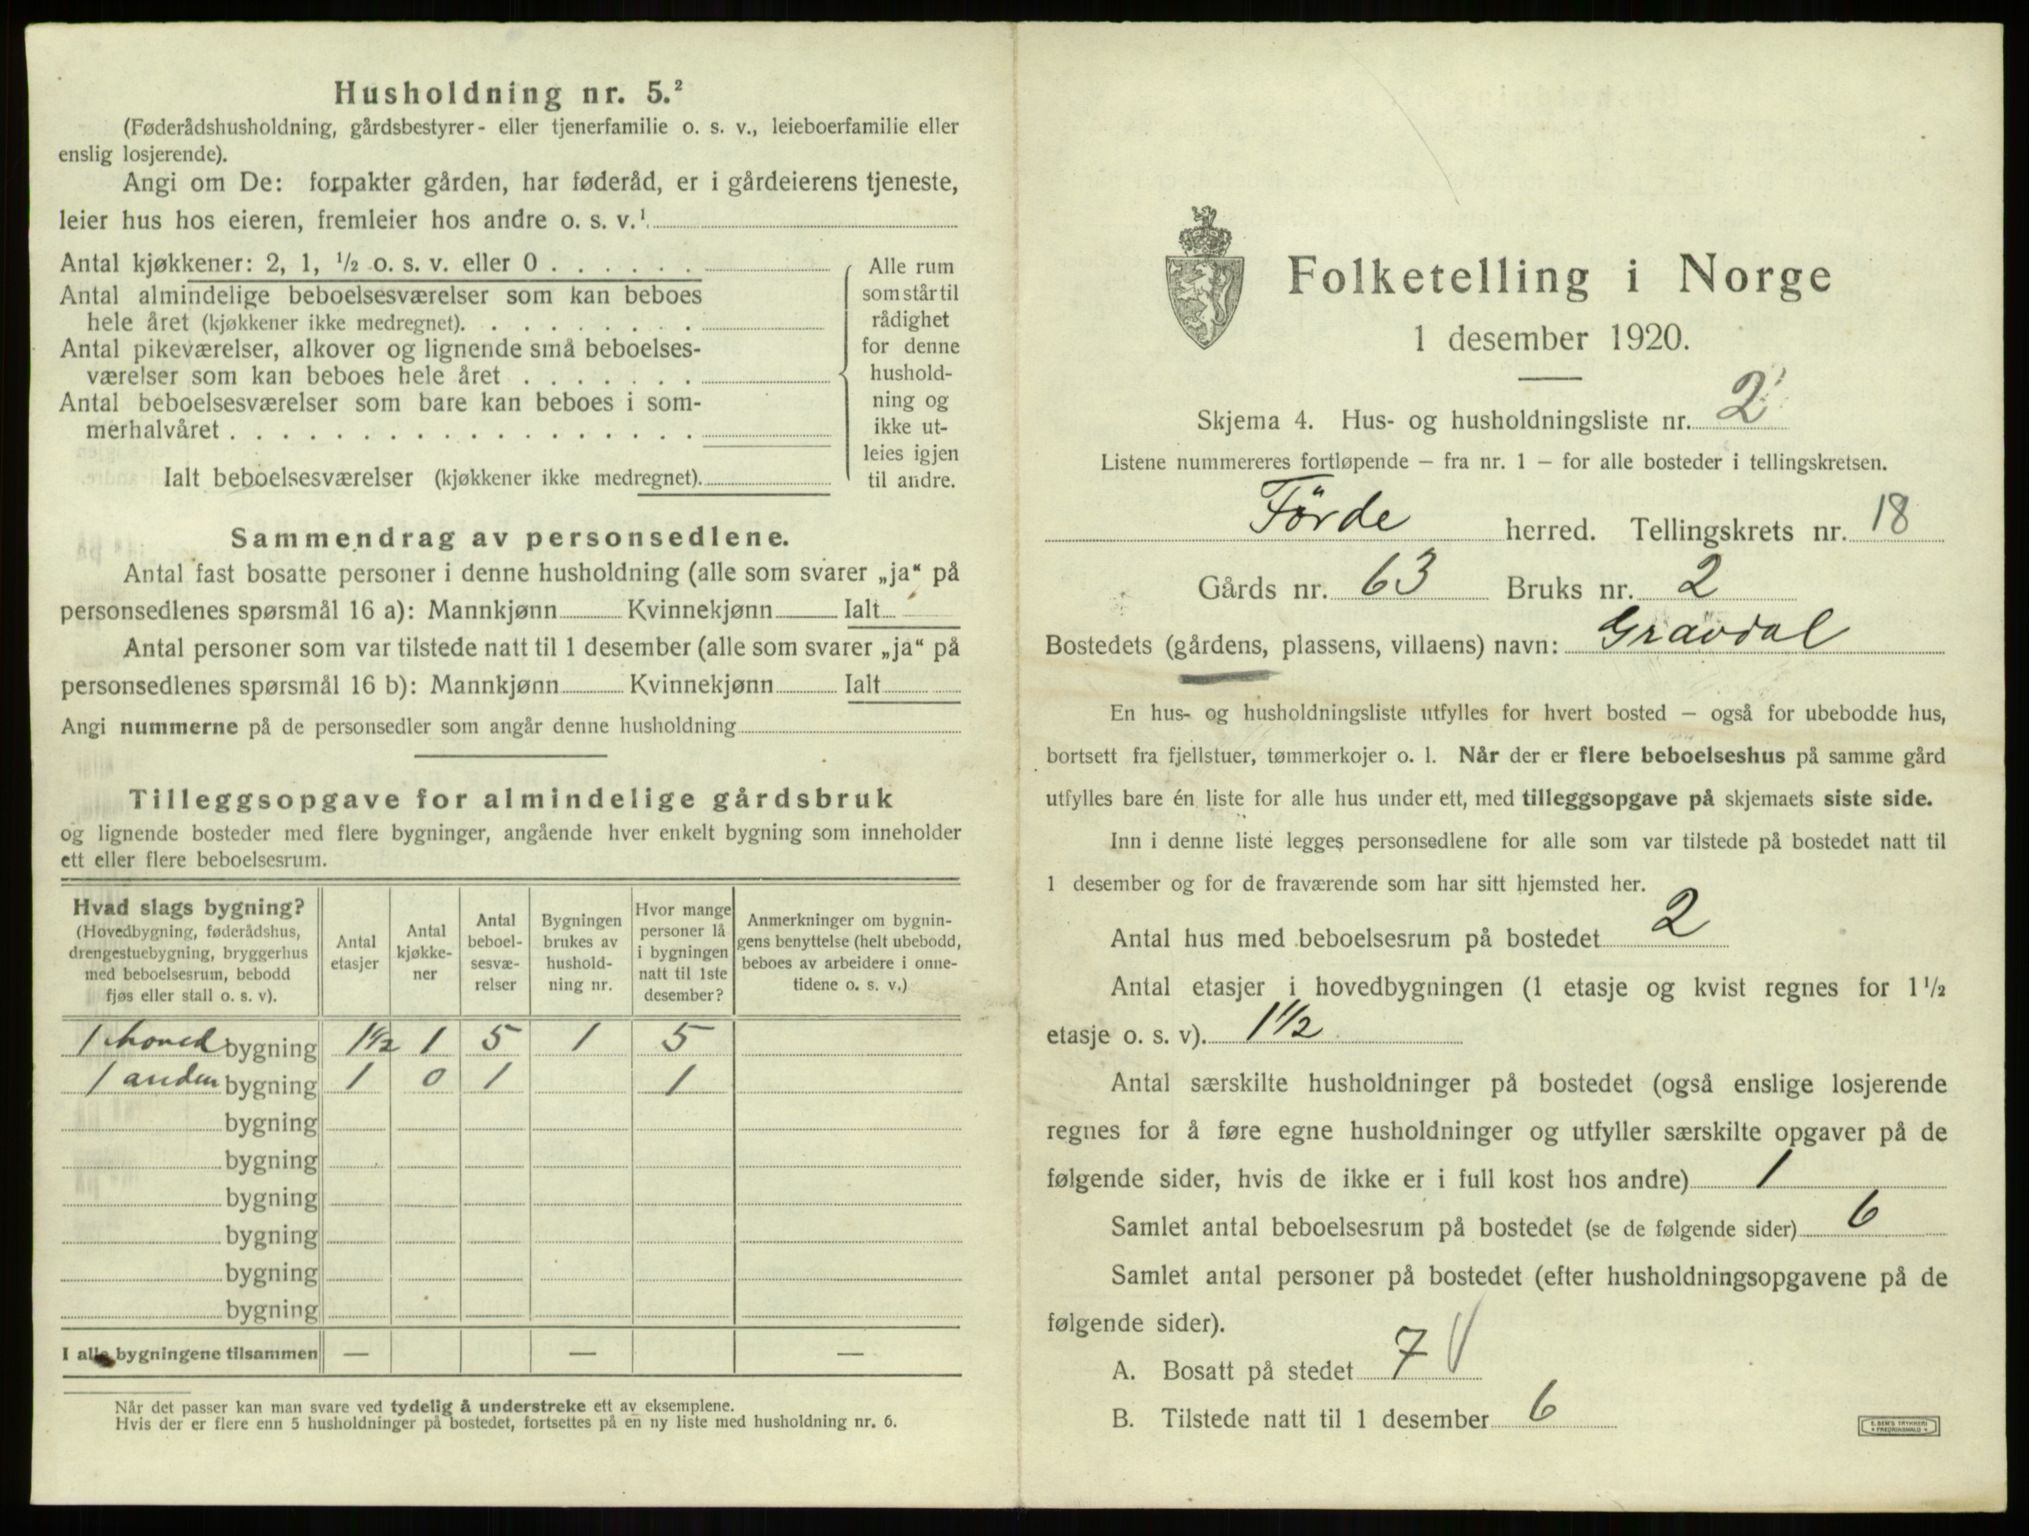 Husholdning nr. 5.²
(Føderådshusholdning, gårdsbestyrer- eller tjenerfamilie o. s. v., leieboerfamilie eller
enslig losjerende).
Angi om De: forpakter gården, har føderåd, er i gårdeierens tjeneste,
leier hus hos eieren, fremleier hos andre o. s. v.¹
Antal kjøkkener: 2, 1, ½ o. s. v. eller 0
Antal almindelige beboelsesværelser som kan beboes
hele året (kjøkkener ikke medregnet).
Antal pikeværelser, alkover og lignende små beboelses-
værelser som kan beboes hele året
Antal beboelsesværelser som bare kan beboes i som-
merhalvåret
Ialt beboelsesværelser (kjøkkener ikke medregnet).
Alle rum
som står til
rådighet
for denne
hushold-
ning og
ikke ut-
leies igjen
til andre.
Sammendrag av personsedlene.
Antal fast bosatte personer i denne husholdning (alle som svarer „ja“ på
personsedlenes spørsmål 16 a): Mannkjønn Kvinnekjønn Ialt
Antal personer som var tilstede natt til 1 desember (alle som svarer „ja“ på
personsedlenes spørsmål 16 b): Mannkjønn Kvinnekjønn Ialt
Angi nummerne på de personsedler som angår denne husholdning
Tilleggsopgave for almindelige gårdsbruk
og lignende bosteder med flere bygninger, angående hver enkelt bygning som inneholder
ett eller flere beboelsesrum.
Hvad slags bygning?
(Hovedbygning, føderådshus,
drengestuebygning, bryggerhus
med beboelsesrum, bebodd
fjøs eller stall o. s. v).
Antal
etasjer
Antal
kjøkke-
ner
Antal
beboel-
sesvæ-
relser
Bygningen
brukes av
hushold-
ning nr.
Hvor mange
personer lå
i bygningen
natt til 1ste
desember?
Anmerkninger om bygnin-
gens benyttelse (helt ubebodd,
beboes av arbeidere i onne-
tidene o. s. v.)
1 hoved bygning 1½ 1 5 1 5
1 anden bygning 1 0 1 1
bygning
bygning
bygning
bygning
bygning
bygning
I alle bygningene tilsammen — — —
Når det passer kan man svare ved tydelig å understreke ett av eksemplene.
Hvis der er flere enn 5 husholdninger på bostedet, fortsettes på en ny liste med husholdning nr. 6.
Folketelling i Norge
1 desember 1920.
Skjema 4. Hus- og husholdningsliste nr. 2
Listene nummereres fortløpende – fra nr. 1 – for alle bosteder i tellingskretsen.
Förde herred. Tellingskrets nr. 18
Gårds nr. 63 Bruks nr. 2
Bostedets (gårdens, plassens, villaens) navn: Gravdal
En hus- og husholdningsliste utfylles for hvert bosted – også for ubebodde hus,
bortsett fra fjellstuer, tømmerkojer o. l. Når der er flere beboelseshus på samme gård
utfylles bare én liste for alle hus under ett, med tilleggsopgave på skjemaets siste side.
Inn i denne liste legges personsedlene for alle som var tilstede på bostedet natt til
1 desember og for de fraværende som har sitt hjemsted her.
Antal hus med beboelsesrum på bostedet 2
Antal etasjer i hovedbygningen (1 etasje og kvist regnes for 1½
etasje o. s. v). 1½
Antal særskilte husholdninger på bostedet (også enslige losjerende
regnes for å føre egne husholdninger og utfyller særskilte opgaver på de
følgende sider, hvis de ikke er i full kost hos andre) 1
Samlet antal beboelsesrum på bostedet (se de følgende sider) 6
Samlet antal personer på bostedet (efter husholdningsopgavene på de
følgende sider).
A. Bosatt på stedet 7
B. Tilstede natt til 1 desember 6